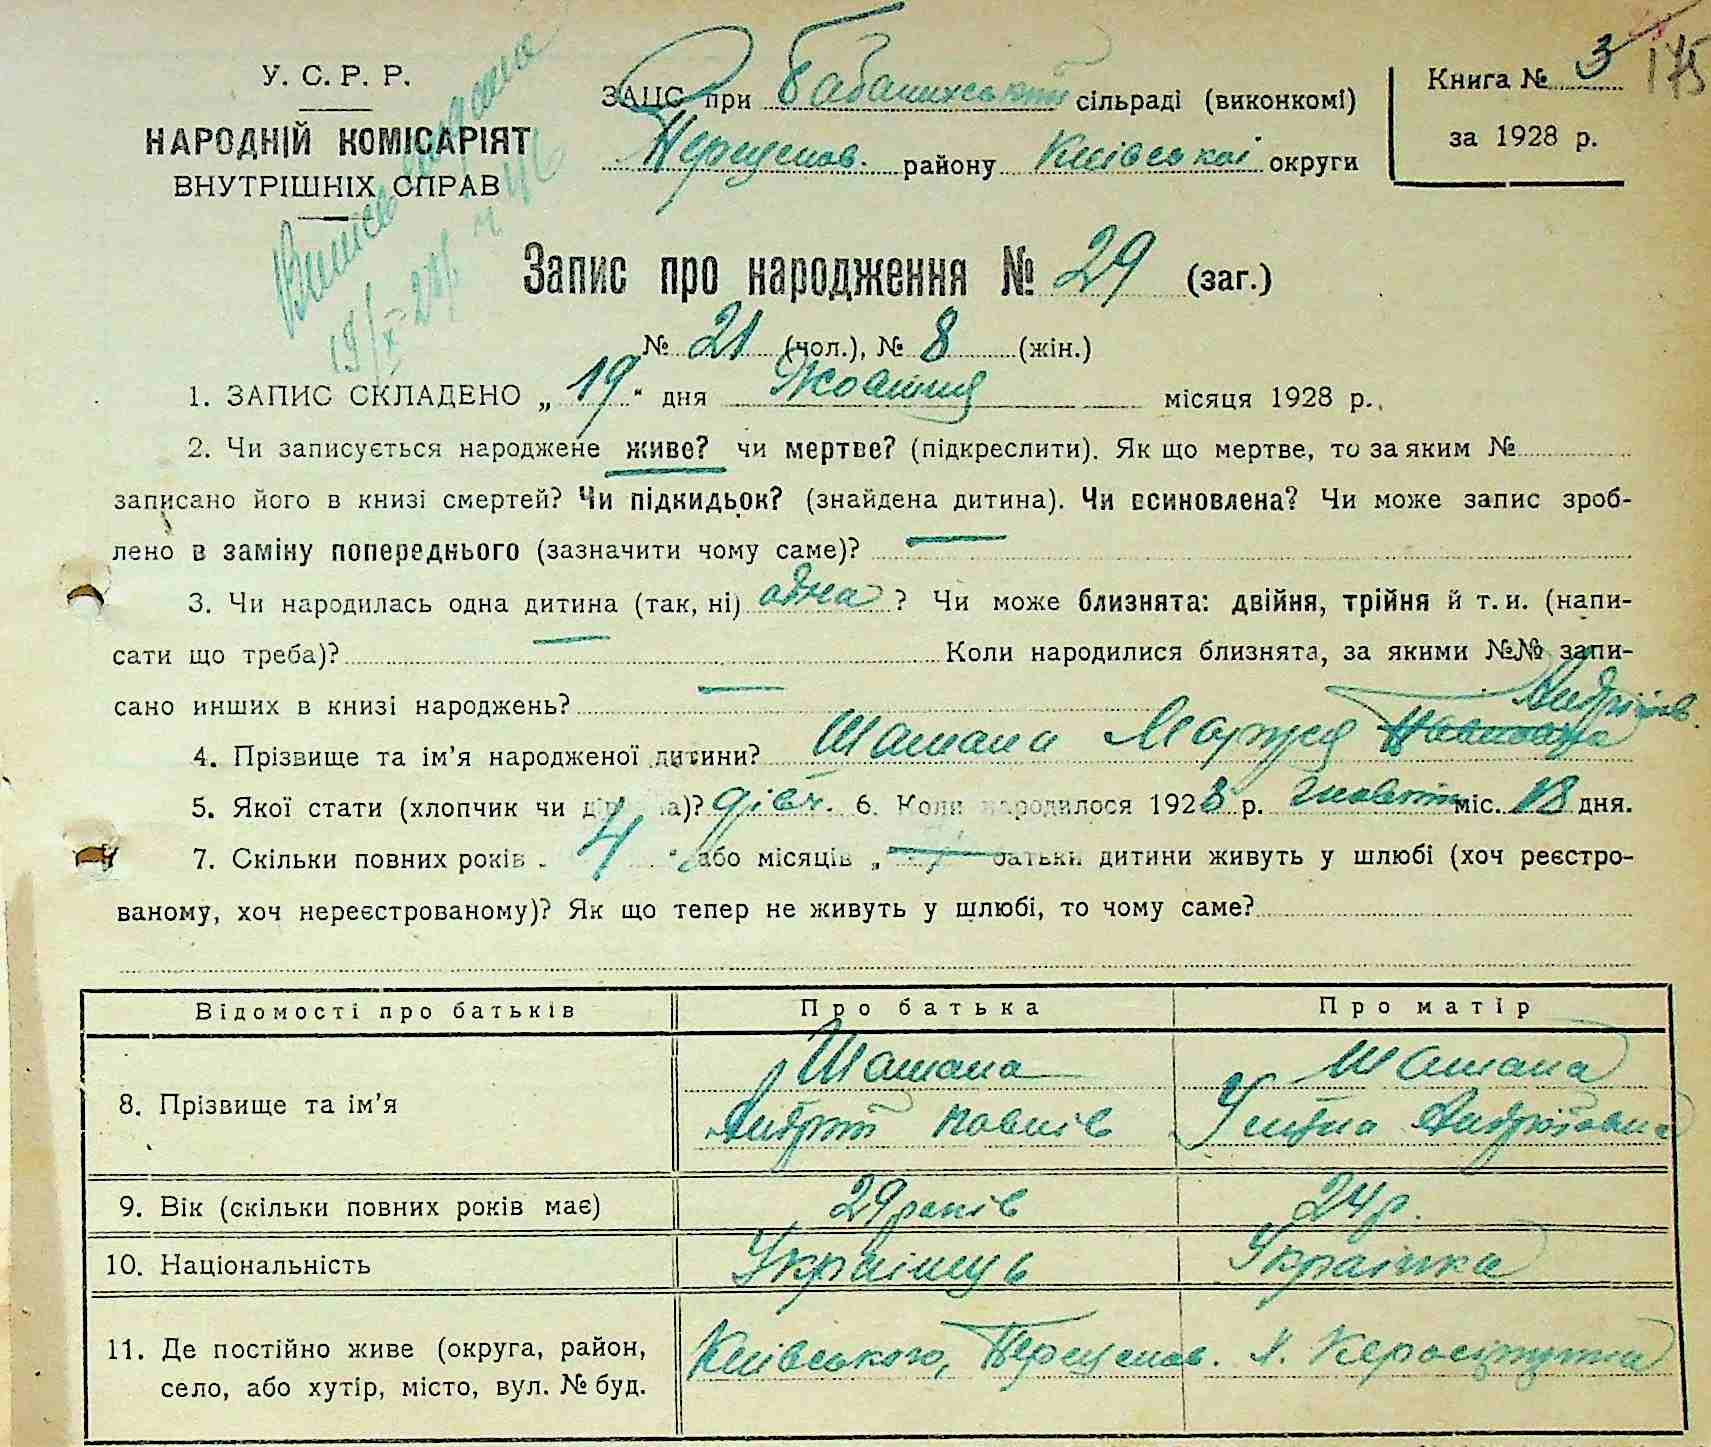 У. С. Р. Р.
НАРОДНІЙ КОМІСАРІЯТ
ВНУТРІШНІХ СПРАВ
ЗАЦС при Бабачихський сільраді (виконкомі)
Переяслав. району Київської округи
Книга № 3
за 1928 р.
175
Запис про народження № 29 (заг.)
№ 21 (чол.), № 8 (жін.)
1. ЗАПИС СКЛАДЕНО „ 19 “ дня Жовтня місяця 1928 р.
2. Чи записується народжене живе? чи мертве? (підкреслити). Як що мертве, то за яким №
записано його в книзі смертей? Чи підкидьок? (знайдена дитина). Чи всиновлена? Чи може запис зроб-
лено в заміну попереднього (зазначити чому саме)? —
3. Чи народилась одна дитина (так, ні) одна ? Чи може близнята: двійня, трійня й т. и. (напи-
сати що треба)? — Коли народилися близнята, за якими №№ запи-
сано инших в книзі народжень? —
Андріїв.
4. Прізвище та ім’я народженої дитини? Шамана Марія Павловна
5. Якої стати (хлопчик чи дівчина)? дівч. 6. Коли народилося 1928 р. жовтня міс. 18 дня.
7. Скільки повних років „ 4 “ або місяців „ — “ батьки дитини живуть у шлюбі (хоч реєстро-
ваному, хоч нереєстрованому)? Як що тепер не живуть у шлюбі, то чому саме?
Відомості про батьків Про батька Про матір
8. Прізвище та ім’я Шамана Андрій Павлів Шамана Андріївна
9. Вік (скільки повних років має) 29 років 24 р.
10. Національність Українець Українка
11. Де постійно живе (округа, район, Київського, Переяслав. х.
село, або хутір, місто, вул. № буд.